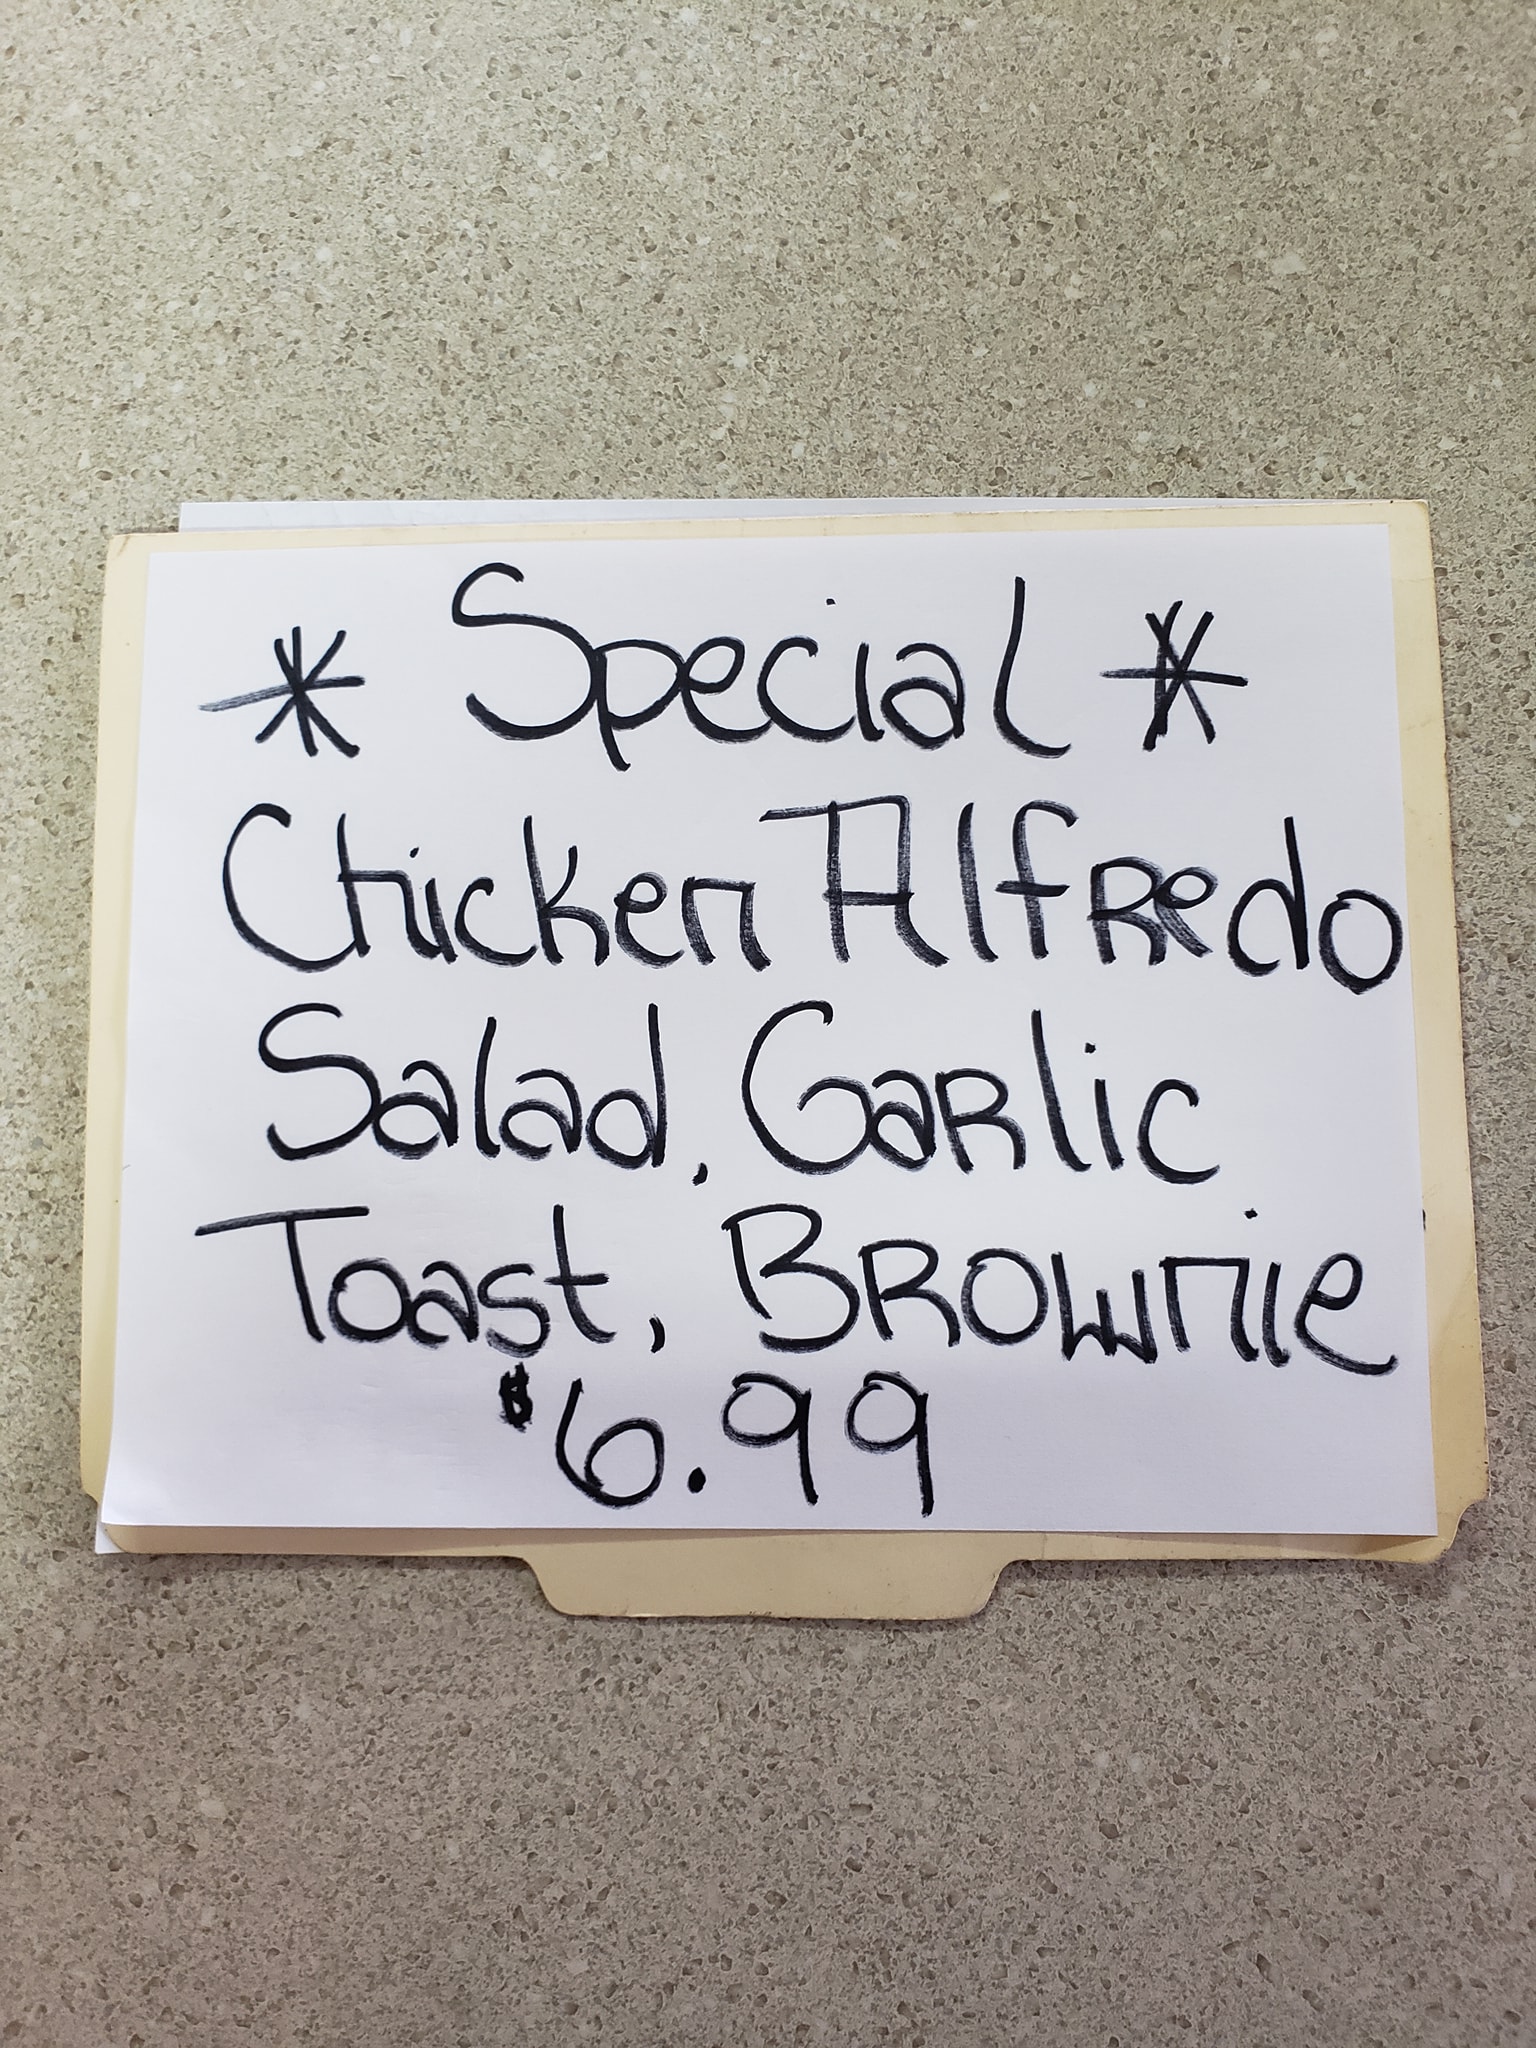 * Special *
Chicken Alfredo
Salad, Garlic
Toast, Brownie
$6.99